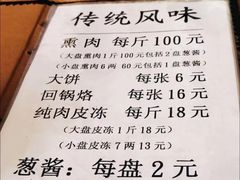 传统风味
熏肉 每斤100元
(大盘熏肉1斤100元包括1盘葱酱)
(小盘熏肉6两60元包括1盘葱酱)
大饼 每张6元
回锅烙 每张16元
纯肉皮冻 每斤18元
(大盘皮冻1斤18元)
(小盘皮冻7两13元)
葱酱：每盘2元